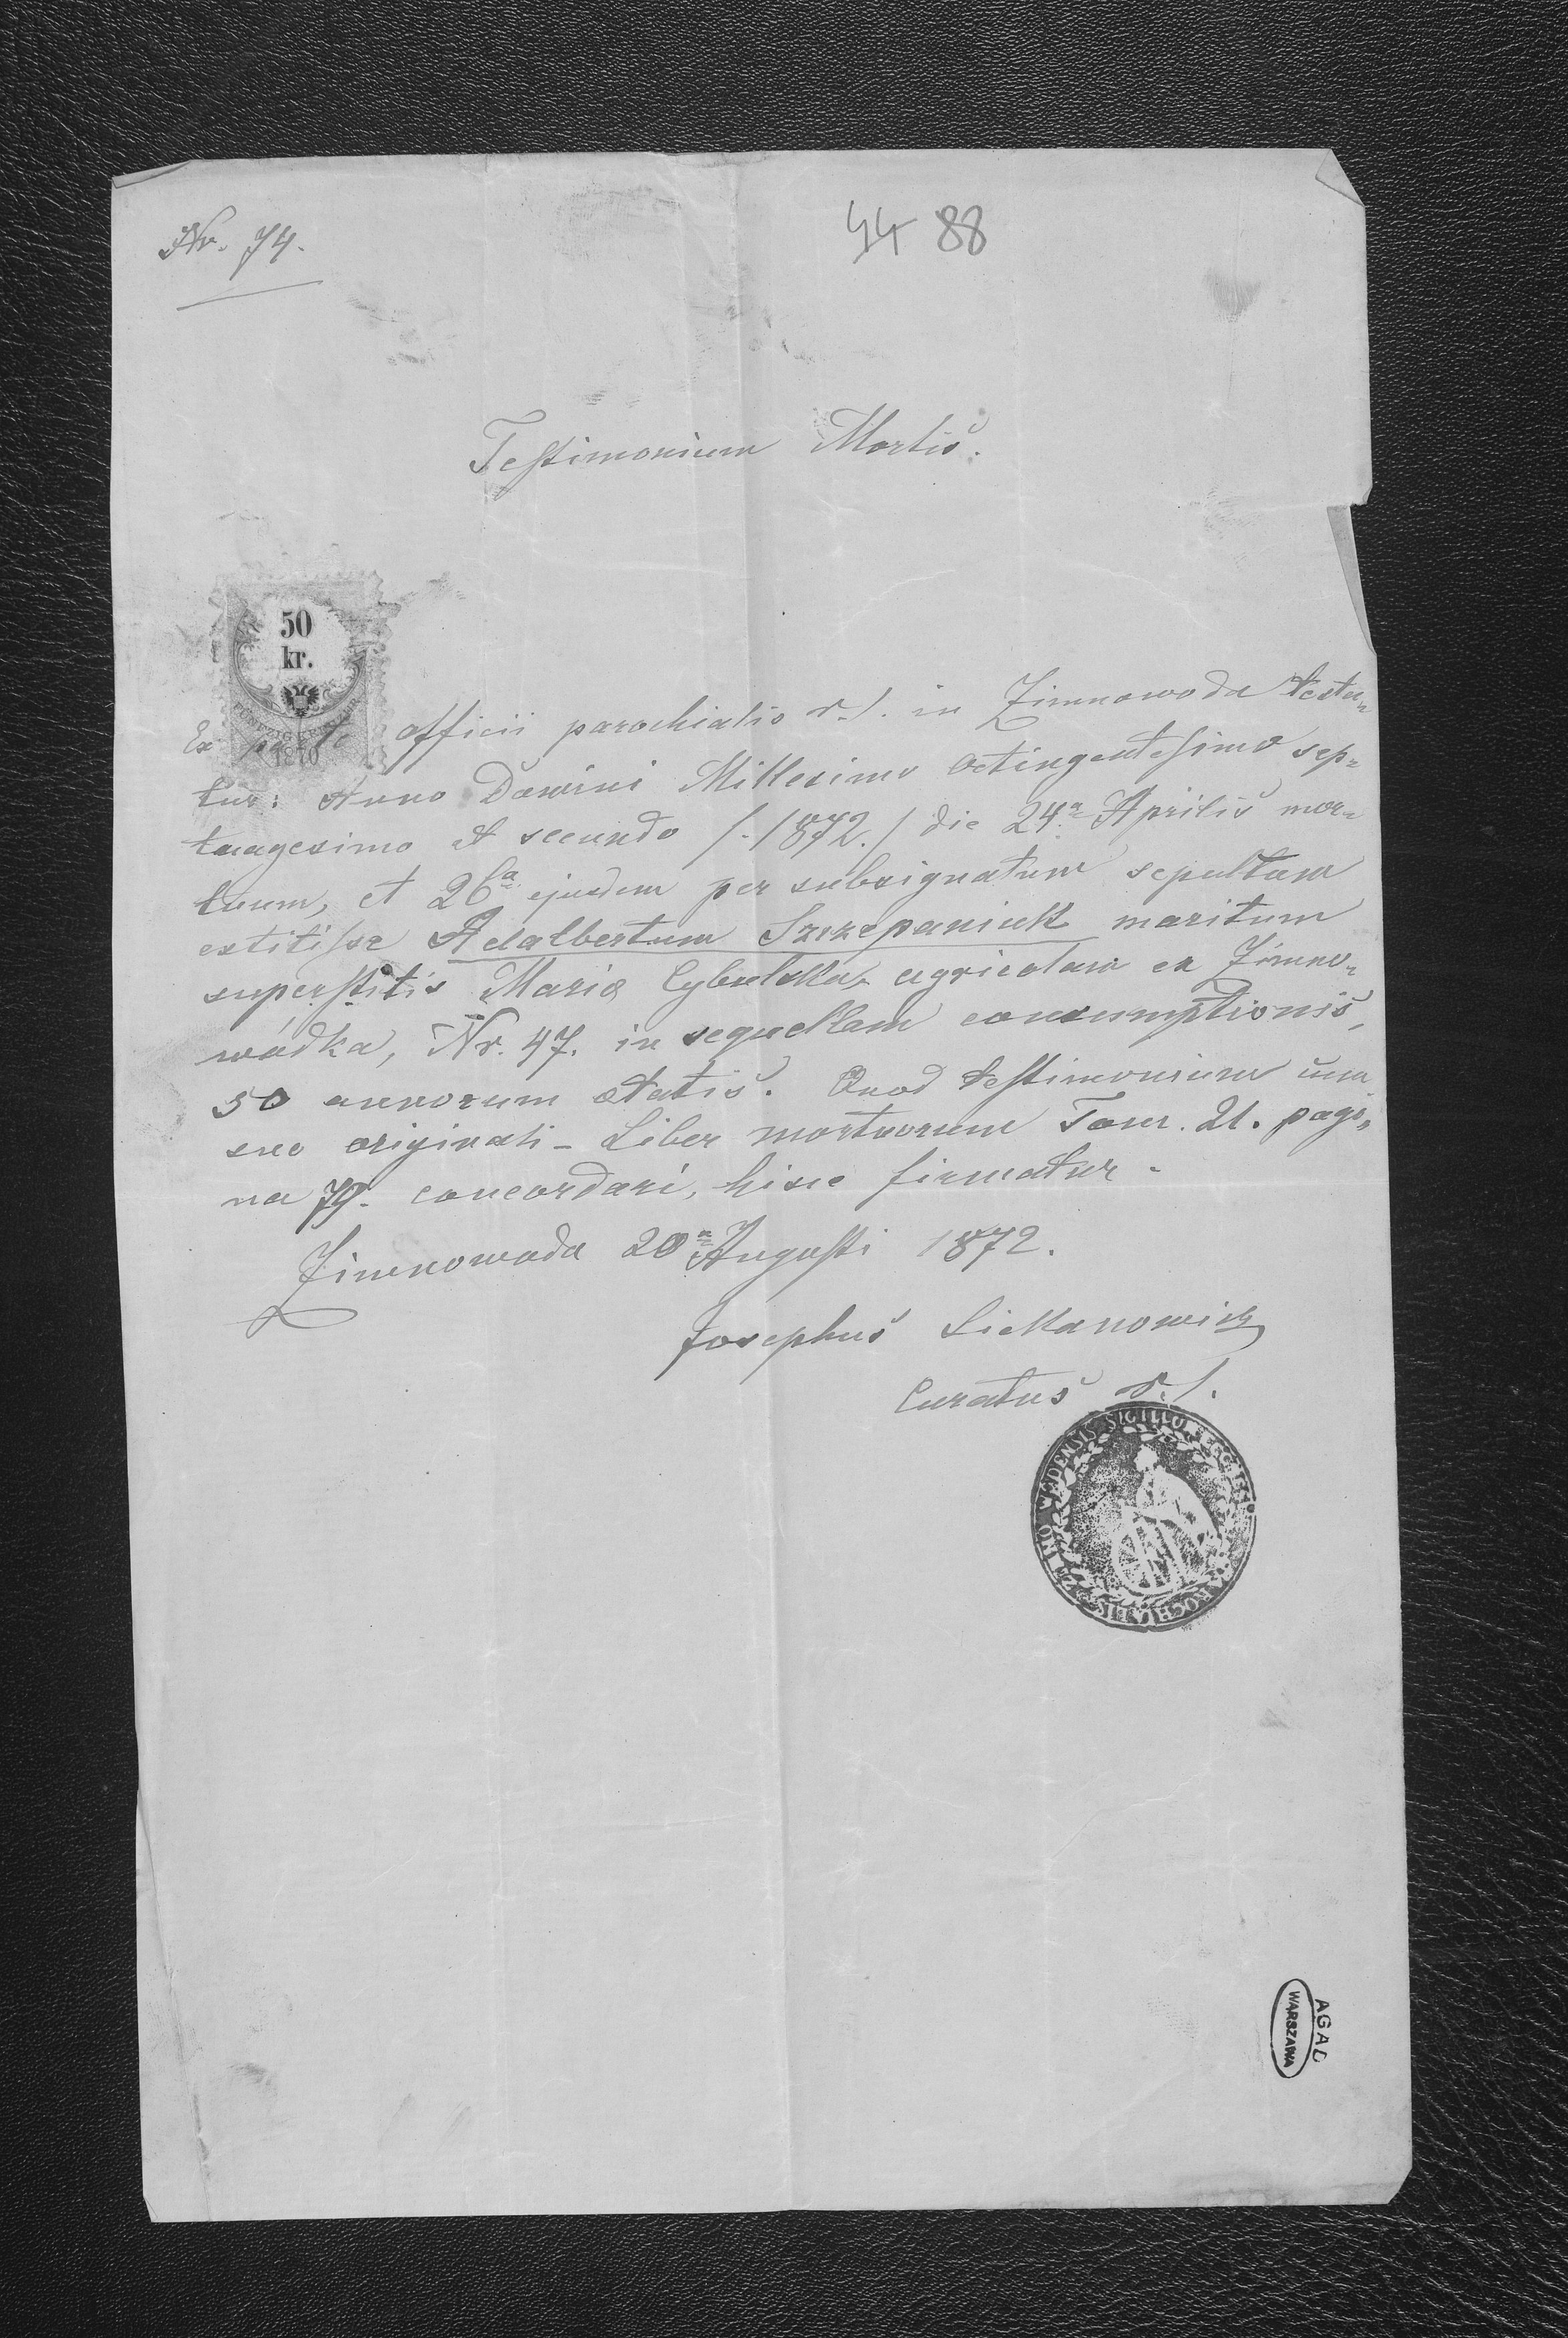 Nr. 74.
44 88
Testimonium Mortis.
50
kr.
1870
Ex parte officii parochialis r. l. in Zimnowoda testa-
tur: Anno Domini Millesimo octingentesimo sep-
tuagesimo et secundo /.1872./ die 24a Aprilis mor-
tuum, et 26a ejusdem per subsignatum sepultum
extitisse Adalbertum Szczepaniuk maritum
superstitis Maria Cybulska agricolam ex Zimno-
wódka, Nr. 47. in sequellam consumptionis,
50 annorum ætatis. Quod testimonium cum
suo originali - Liber mortuorum Tom. 21. pagi-
na 79. concordari, hisce firmatur.
Zimnowoda 20a Augusti 1872.
Josephus
Curatus r. l.
WODENSIS SIGILLU
AGAD
WARSZAWA